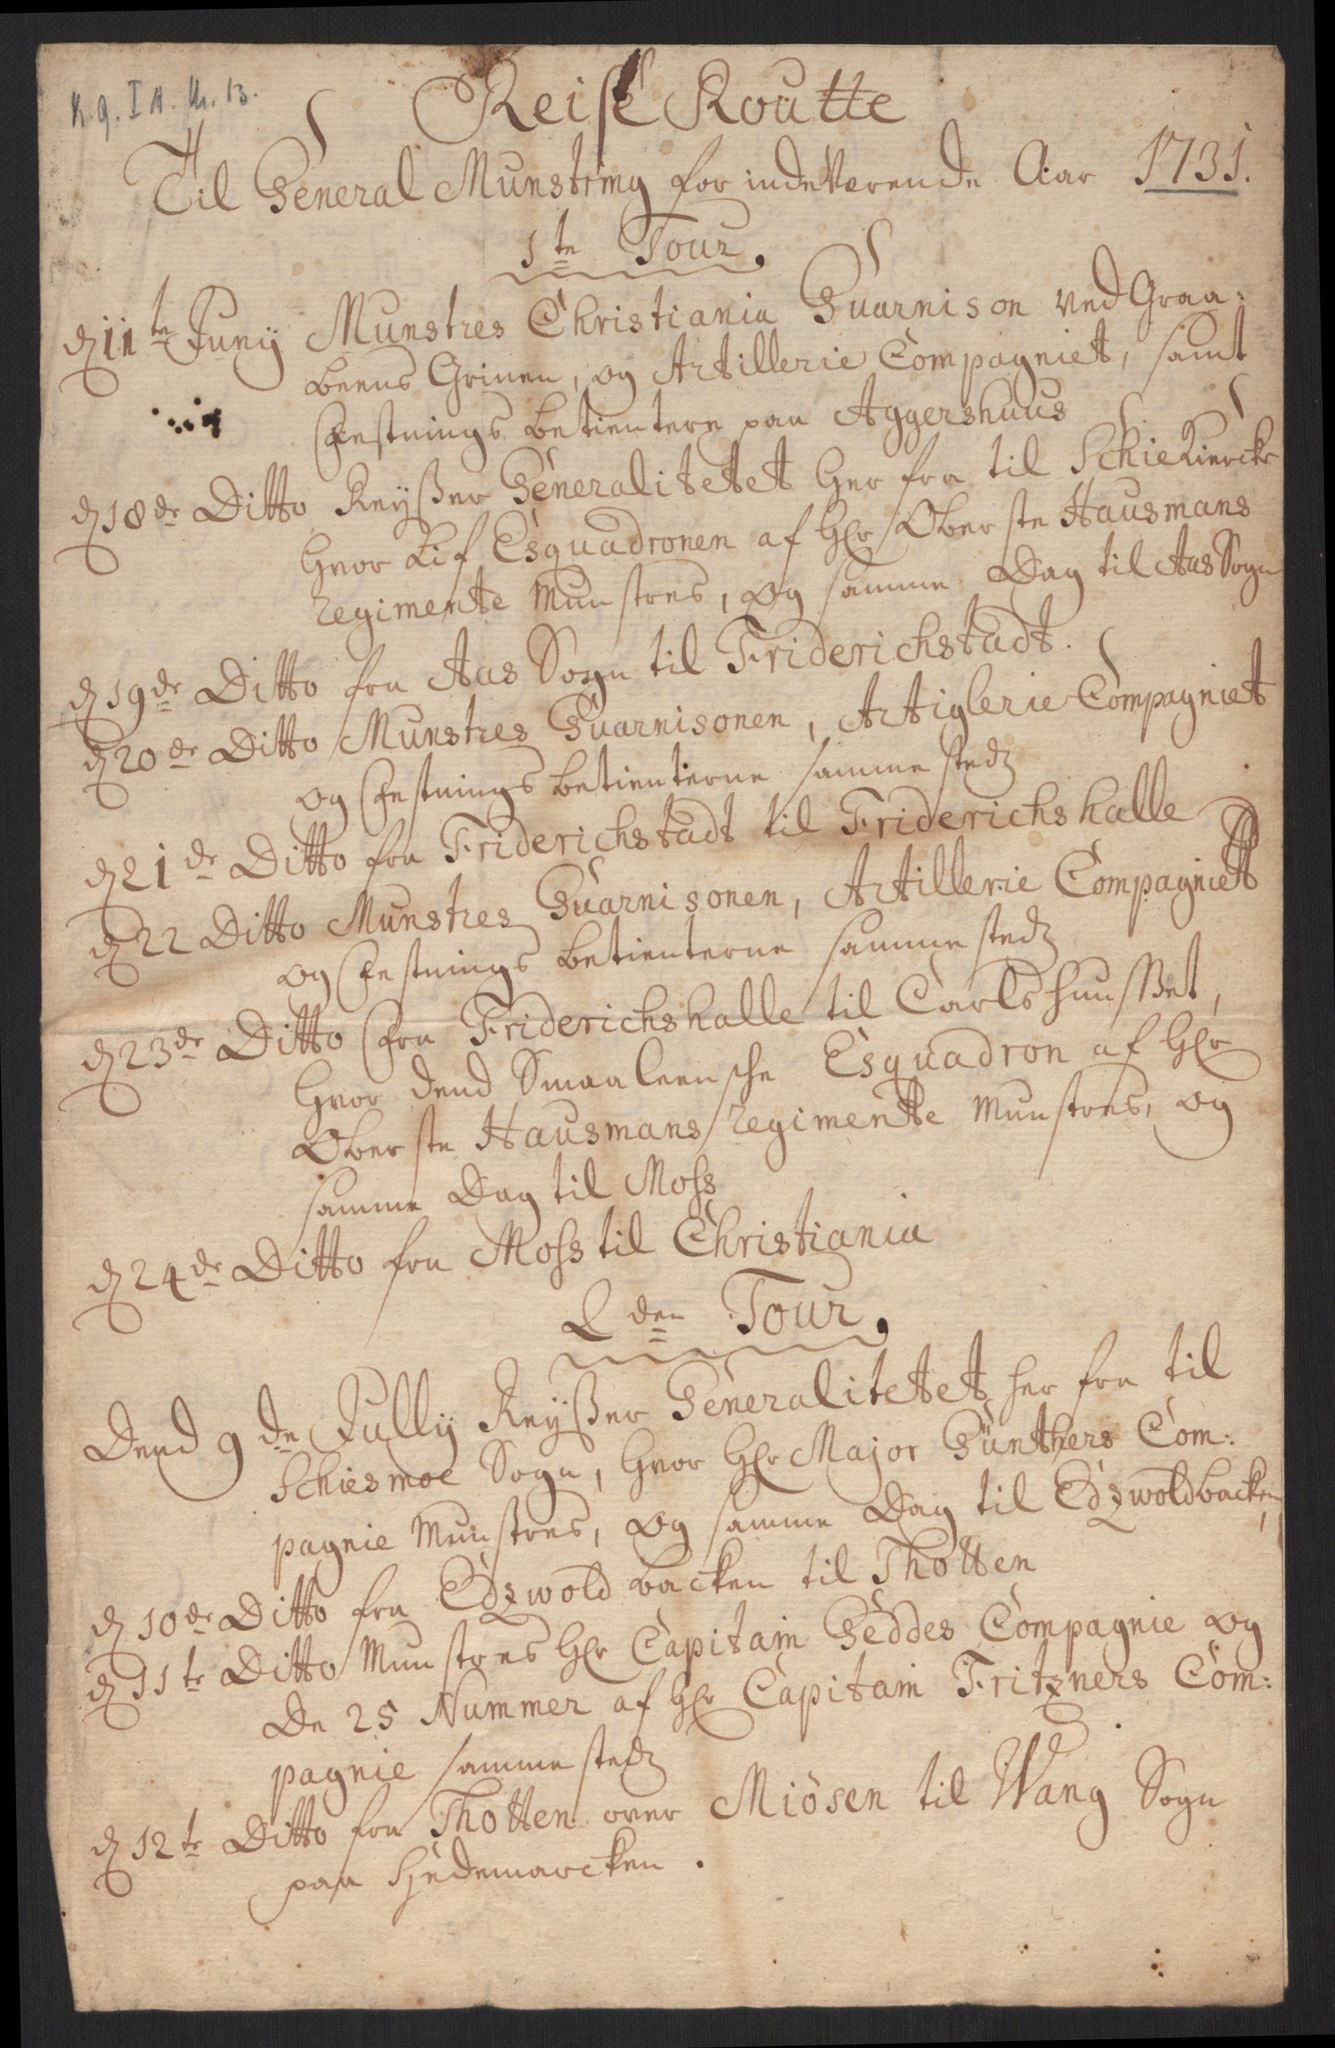 K. q. I A. Nr. 13.
Reise Routte
Til General Munstring for indeWærende Aar 1731.
1te Tour.
d 11te Junij Munstres Christiania Guarnison ved Graa-
beens Grinen, og Artillerie Compagniet, samt
Festnings betientere paa Aggershuus
d 18de Ditto Reyßer Generalitetet her fra til SchieKiercke
hvor Lif Esquadronen af Hr Oberste Hausmans
regimente Munstres, og samme Dag til Aas Sogn
d 19de Ditto fra Aas Sogn til Friderichstadt.
d 20de Ditto Munstres Guarnisonen, Artiglerie Compagniet
og Festnings betienterne sammestedz
d 21de Ditto fra Friderichstadt til Friderichshalle
d 22 Ditto Munstres Guarnisonen, Artillerie Compagniet
og Festnings betienterne sammestedz
d 23de Ditto fra Friderichshalle til Carlshuusset,
hvor dend Smaaleensche Esquadron af Hr
Oberste Hausmans regimente Munstres, og
samme Dag til Moss
d 24de Ditto fra Moss til Christiania
2den Tour.
Dend 9de Jullij Reyßer Generalitetet her fra til
Schiesmoe Sogn, hvor Hr Major Günthers Com:
pagnie Munstres, og samme Dag til Edzwoldbacken,
d 10de Ditto fra Edzwoldbacken til Thotten
d 11te Ditto Munstres Hr Capitain Geddes Compagnie og
De 25 Nummer af Hr Capitain Fritzners Com:
pagnie sammestedz
d 12te Ditto fra Thotten over Miösen til Wang Sogn
paa Hedemarcken.